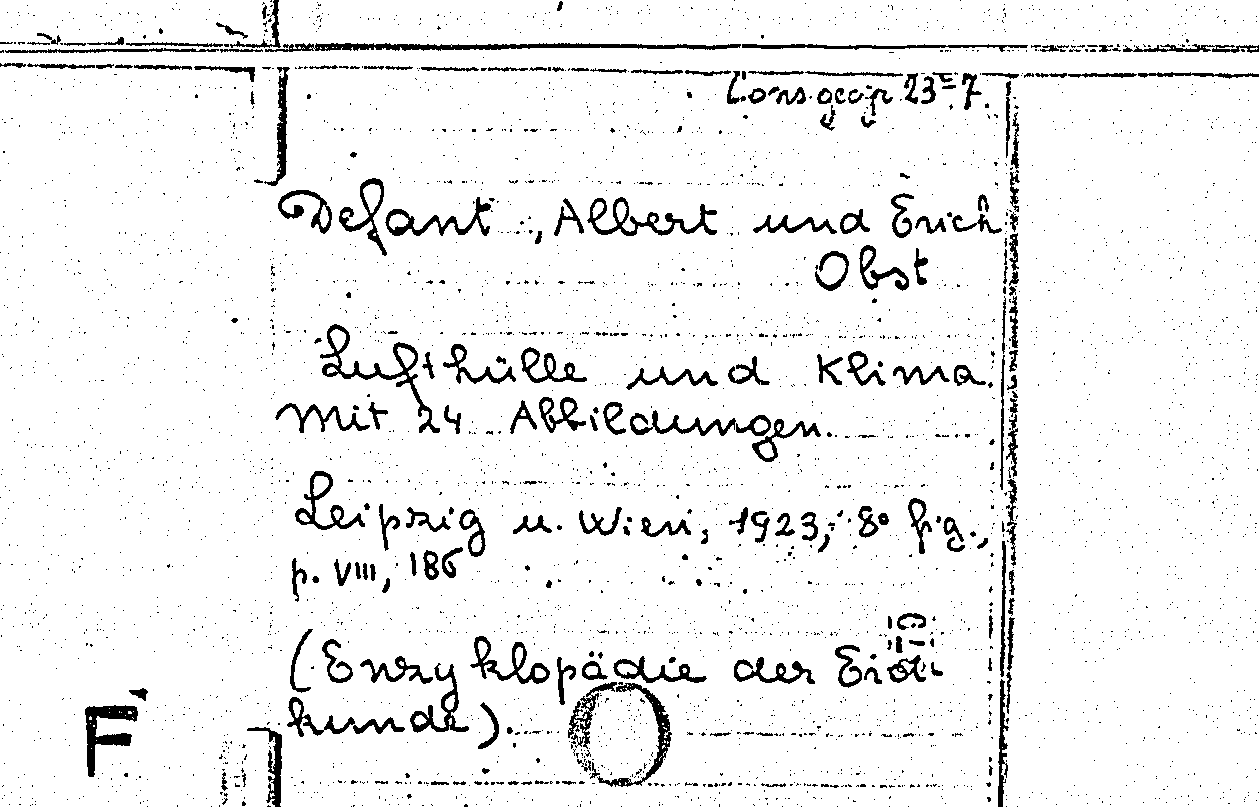 Cons. geogr. 23=7.
Defant, Albert und Erich
Obst
Lufthülle und Klima.
Mit 24 Abbildungen.
Leipzig u. Wien, 1923, 8° fig.,
p. VIII, 186
(Enzyklopädie der Erd-
kunde).
F